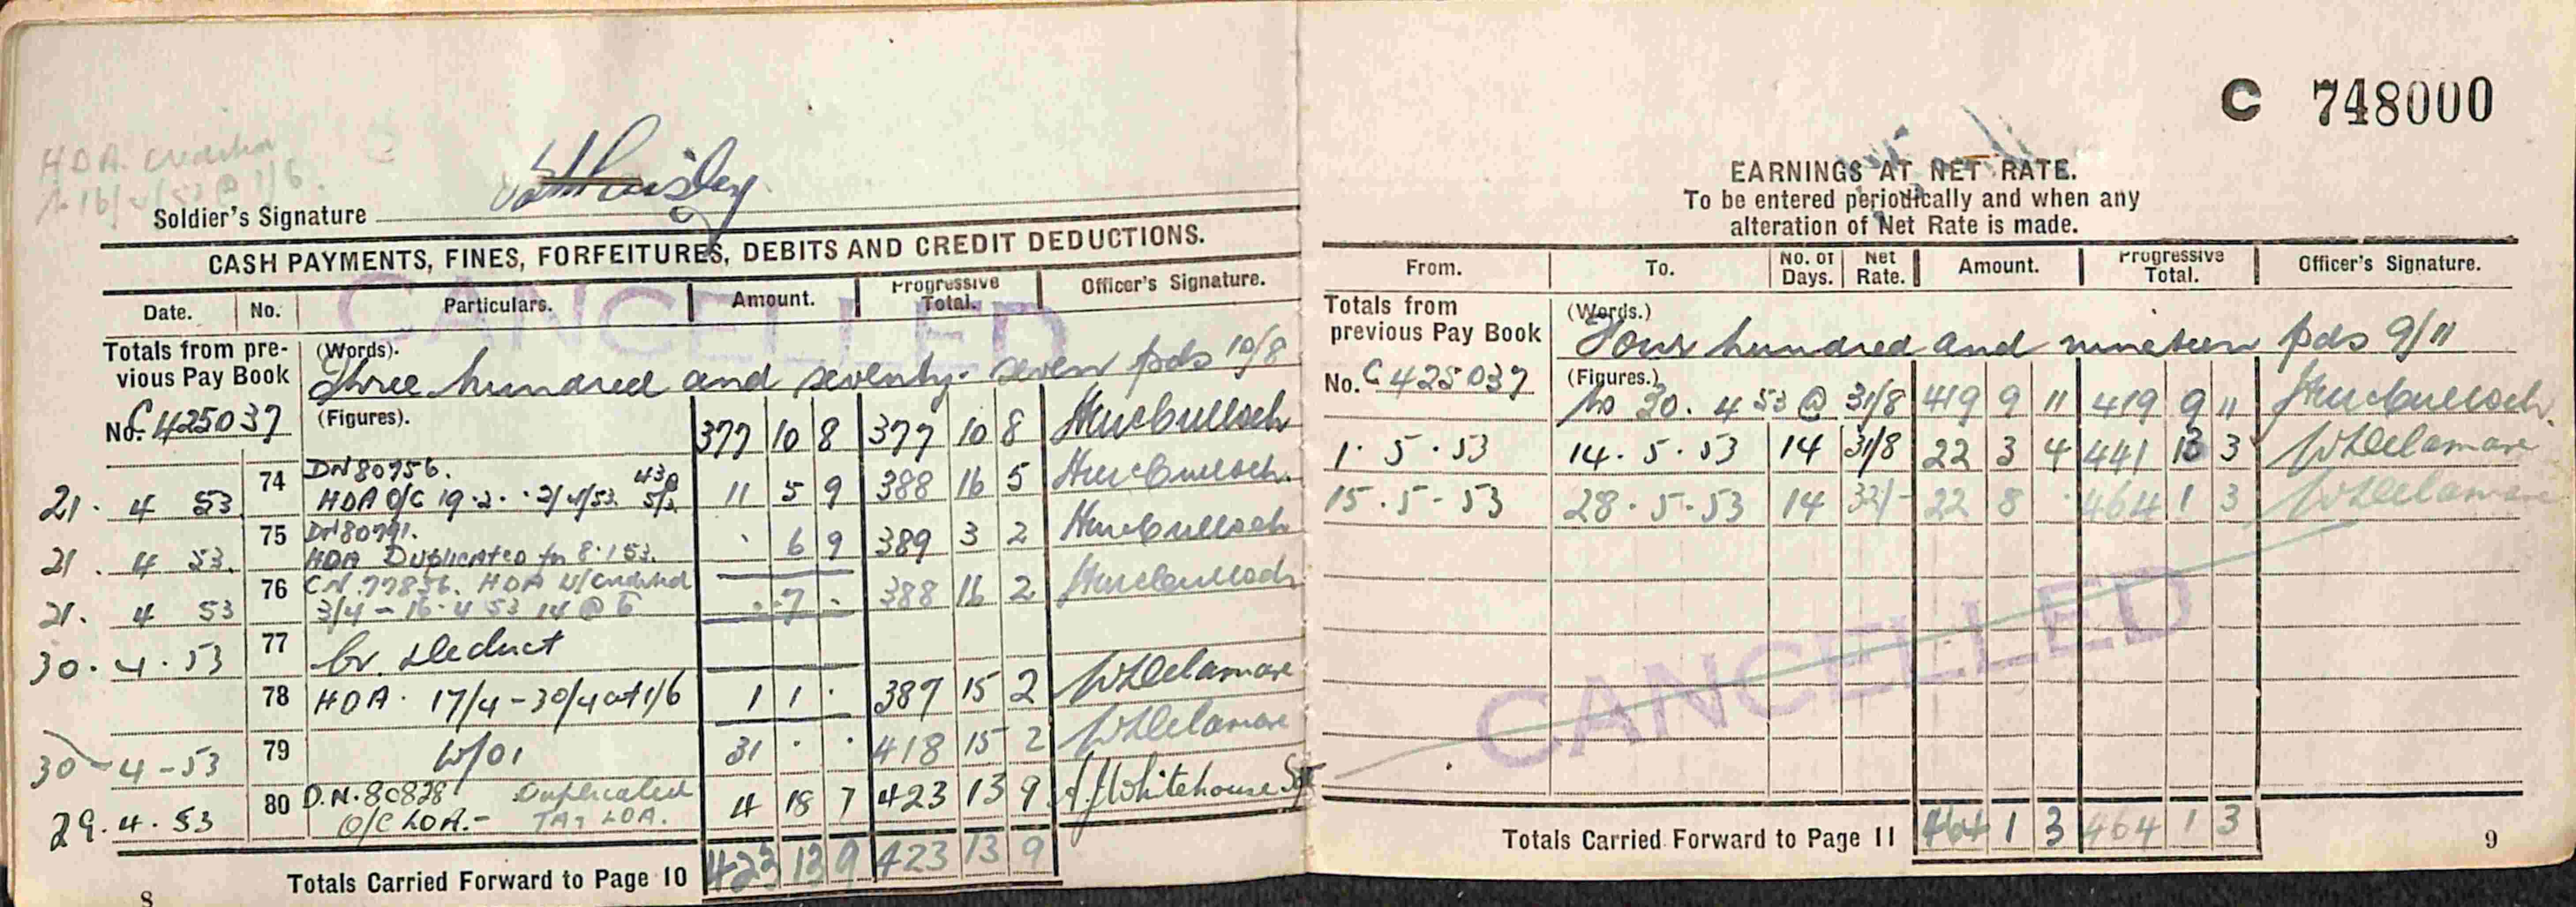 H.D.A. credited
to 16/4/53 @ 1/6.
Soldier's Signature
CASH PAYMENTS, FINES, FORFEITURES, DEBITS AND CREDIT DEDUCTIONS.
Date. No. Particulars. Amount. Progressive Total. Officer's Signature.
Totals from previous Pay Book (Words). Three hundred and seventy-seven pds 10/8
No. C 425037 (Figures). 377 10 8 377 10 8
21. 4 53 74 DN 80756.
HDA O/C 19.2. 2/4/53 11 5 9 388 16 5
21. 4 53. 75 DN 80791.
HDA Duplicated for 8.1.53. . 6 9 389 3 2
21. 4 53 76 C.N. 77836. HDA U/Credited
3/4 - 16.4 53 14 @ 6 . 7 . 388 16 2
30. 4. 53 77 Cr. deduct
78 HDA. 17/4 - 30/4 at 1/6 1 1 . 387 15 2 W L Delamare
30-4-53 79 W/O1 31 . . 418 15 2 W L Delamare
29. 4. 53 80 D.N. 80828 Duplicated
O/C LOA.- TA, LOA. 4 18 7 423 13 9 A. J. Whitehouse
Totals Carried Forward to Page 10 423 13 9 423 13 9
8
CANCELLED
C 748000
EARNINGS AT NET RATE.
To be entered periodically and when any
alteration of Net Rate is made.
From. To. No. of Days. Net Rate. Amount. Progressive Total. Officer's Signature.
Totals from previous Pay Book (Words.) Four hundred and nineteen pds 9/11
No. C 425037 (Figures.) to 30. 4 53 @ 31/8 419 9 11 419 9 11
1. 5. 53 14. 5. 53 14 31/8 22 3 4 441 13 3 W L Delamare
15. 5. 53 28. 5. 53 14 32/- 22 8 . 464 1 3 W L Delamare
CANCELLED
Totals Carried Forward to Page 11 464 1 3 464 1 3
9